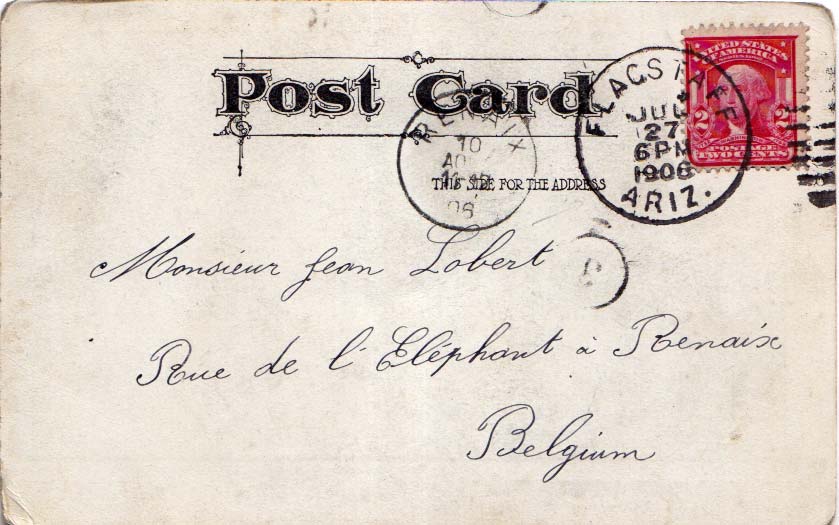 Post Card
THIS SIDE FOR THE ADDRESS
UNITED STATES
OF AMERICA
2 2
POSTAGE
TWO CENTS
FLAGSTAFF
JUL
27
6PM
1906
ARIZ.
RENAIX
10
AO
06
Monsieur Jean Lobert
Rue de l'Eléphant à Renaix
Belgium